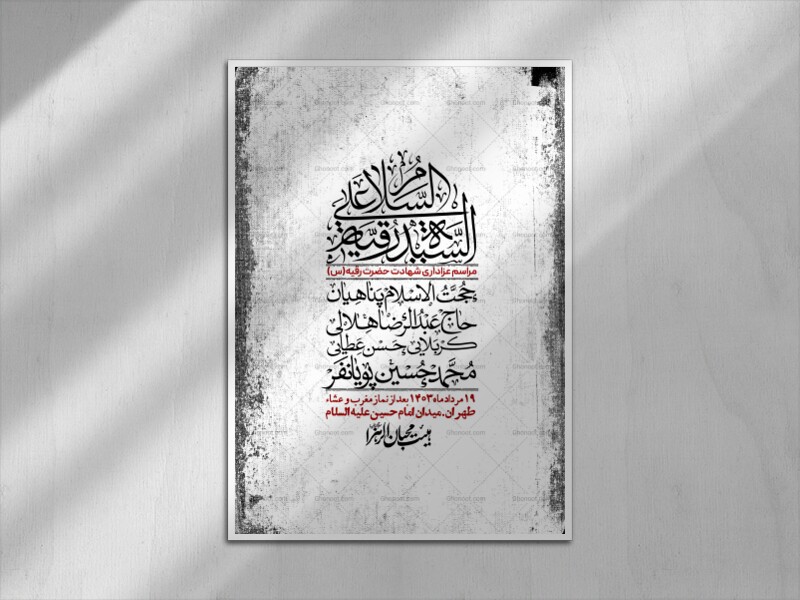 السلام علی
السیدة رقیه
مراسم عزاداری شهادت حضرت رقیه (س)
حُجَّتُ الاِسْلٰام پَناهیان
حاج عَبْدُالرِّضا هِلالی
کَربَلایی حَسَن عَطایی
مُحَمَّدحُسِین پویانفَر
۱۹ مرداد ماه ۱۴۰۳ بعد از نماز مغرب و عشاء
طهران، میدان امام حسین علیه السلام
هیئت محبان الزهرا
Ghonoot.com